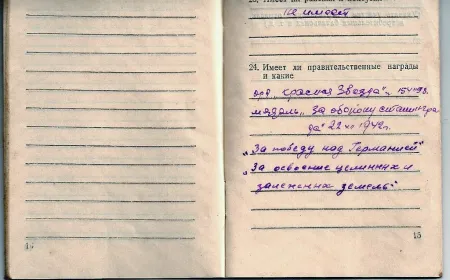 не имеет
24. Имеет ли правительственные награды
и какие
орд „Красная Звезда"
медаль „За оборону сталингра
да" 22 XII 1942г.
„За победу над Германией"
„За освоение целинных и
залежных земель"
16
15